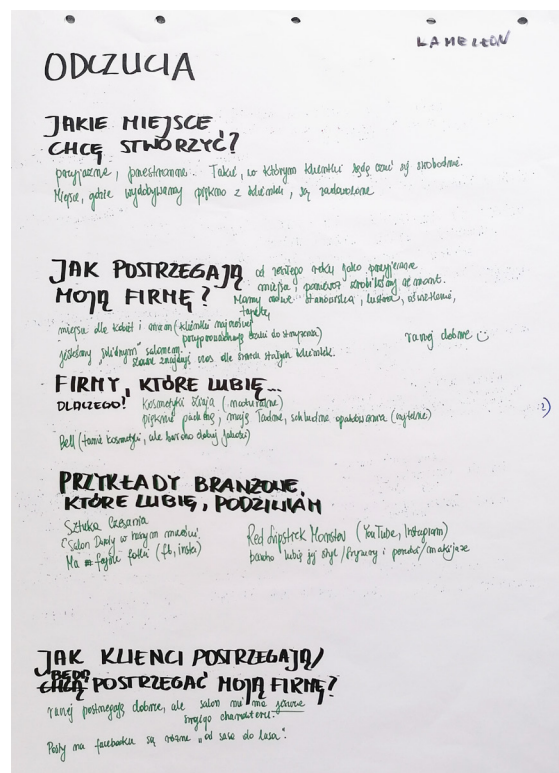 LAMELEON
ODCZUCIA
JAKIE MIEJSCE
CHCĘ STWORZYĆ?
przyjazne, przestrzenne. Takie, w którym klientki będą czuć się swobodnie.
Miejsce, gdzie wydobywamy piękno z klientek, są zadowolone
JAK POSTRZEGAJĄ
MOJĄ FIRMĘ?
od zeszłego roku jako przyjazne
miejsce, ponieważ zrobiliśmy remont.
Mamy nowe stanowiska, lustra, oświetlenie,
tapetę,
miejsce dla kobiet i
(klientki najczęściej
przyprowadzają do strzyżenia)
jesteśmy „solidnym” salonem.
zawsze znajduję czas dla swoich stałych klientek.
raczej dobrze
FIRMY, KTÓRE LUBIĘ...
DLACZEGO?
Kosmetyki Ziaja (naturalne)
piękne pachną, mają ładne, schludne opakowania (czytelne)
:)
Bell (tanie kosmetyki, ale bardzo dobrej jakości)
PRZYKŁADY BRANŻOWE,
KTÓRE LUBIĘ, PODZIWIAM
Sztuka Czesania
(Salon Duży w naszym mieście)
Ma fajne fotki (fb, insta)
Red Lipstick Monster (YouTube, Instagram)
bardzo lubię jej styl/fryzury i porady/makijaże
JAK KLIENCI POSTRZEGAJĄ/
BĘDĄ
CHCĄ POSTRZEGAĆ MOJĄ FIRMĘ?
raczej postrzegają dobrze, ale salon nie ma jeszcze
swojego charakteru.
Posty na facebooku są różne „od sasa do lasa”.